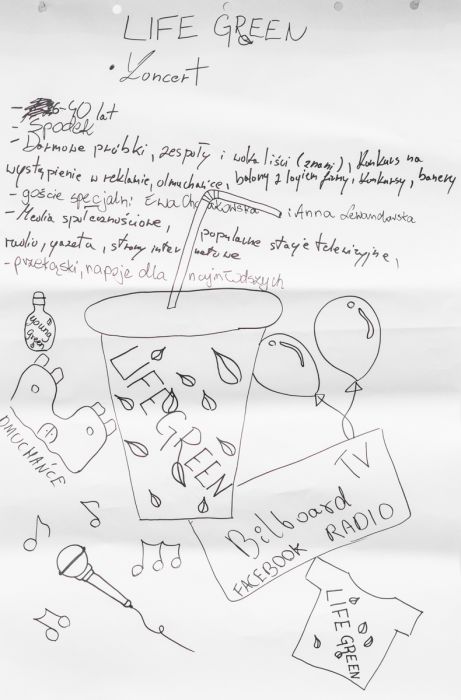 LIFE GREEN
• Koncert
- 6-40 lat
- Spodek
- Darmowe próbki, zespoły i wokaliści (znani), Konkurs na
wystąpienie w reklamie, dmuchańce, balony z logiem firmy, konkursy, banery
- goście specjalni Ewa Chodakowska, i Anna Lewandowska
- Media społecznościowe, popularne stacje telewizyjne,
radio, gazeta, strony internetowe
- przekąski, napoje dla najmłodszych
young
green
DMUCHAŃCE
LIFE GREEN
TV
Bilboard
RADIO
FACEBOOK
LIFE GREEN